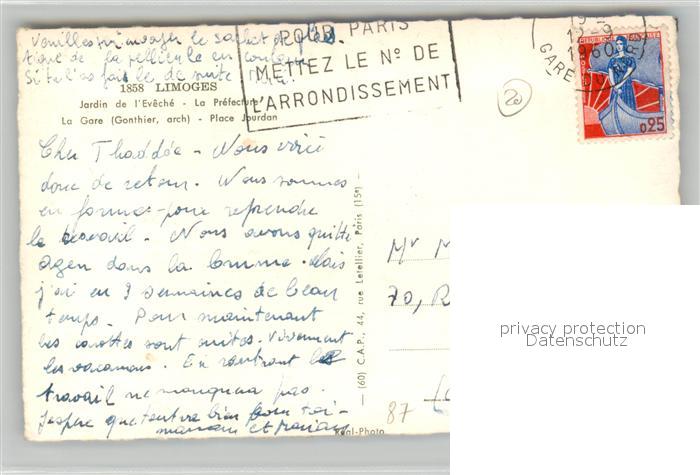 Veuilles m'envoyer le sachet de plas
tique de la pellicule en couleur
Si tu l'as fais le de suite
POUR PARIS
METTEZ LE Nº DE
L'ARRONDISSEMENT
12-9
1960
GARE
REPUBLIQUE FRANÇAISE
POSTES
0,25
20
1858 LIMOGES
Jardin de l'Evêché - La Préfecture
La Gare (Gonthier, arch) - Place Jourdan
Cher Thaddée - Nous voici
donc de retour. Nous sommes
en forme pour reprendre
le travail. Nous avons quitté
agen dans la brume. Mais
j'ai eu 3 semaines de beau
temps. Pour maintenant
les carottes sont cuites. Vivement
les vacances. En rentrant le
travail ne manquera pas.
J'espère que tout va bien pour toi -
maman et
— (60) C.A.P., 44, rue Letellier, Paris (15e) —
Real-Photo
Mr
70, R
87
privacy protection
Datenschutz